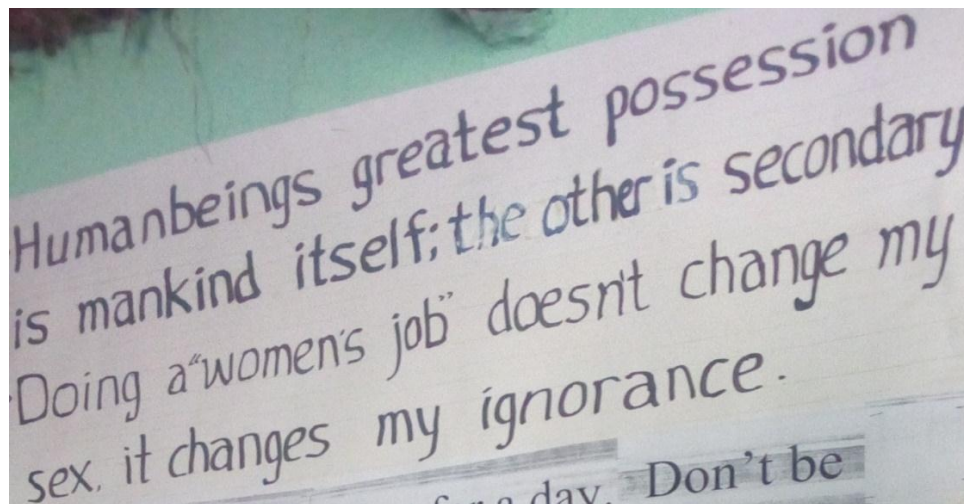 Humanbeings greatest possession
is mankind itself; the other is secondary
Doing a "women's job" doesn't change my
sex. it changes my ignorance.
a day. Don't be